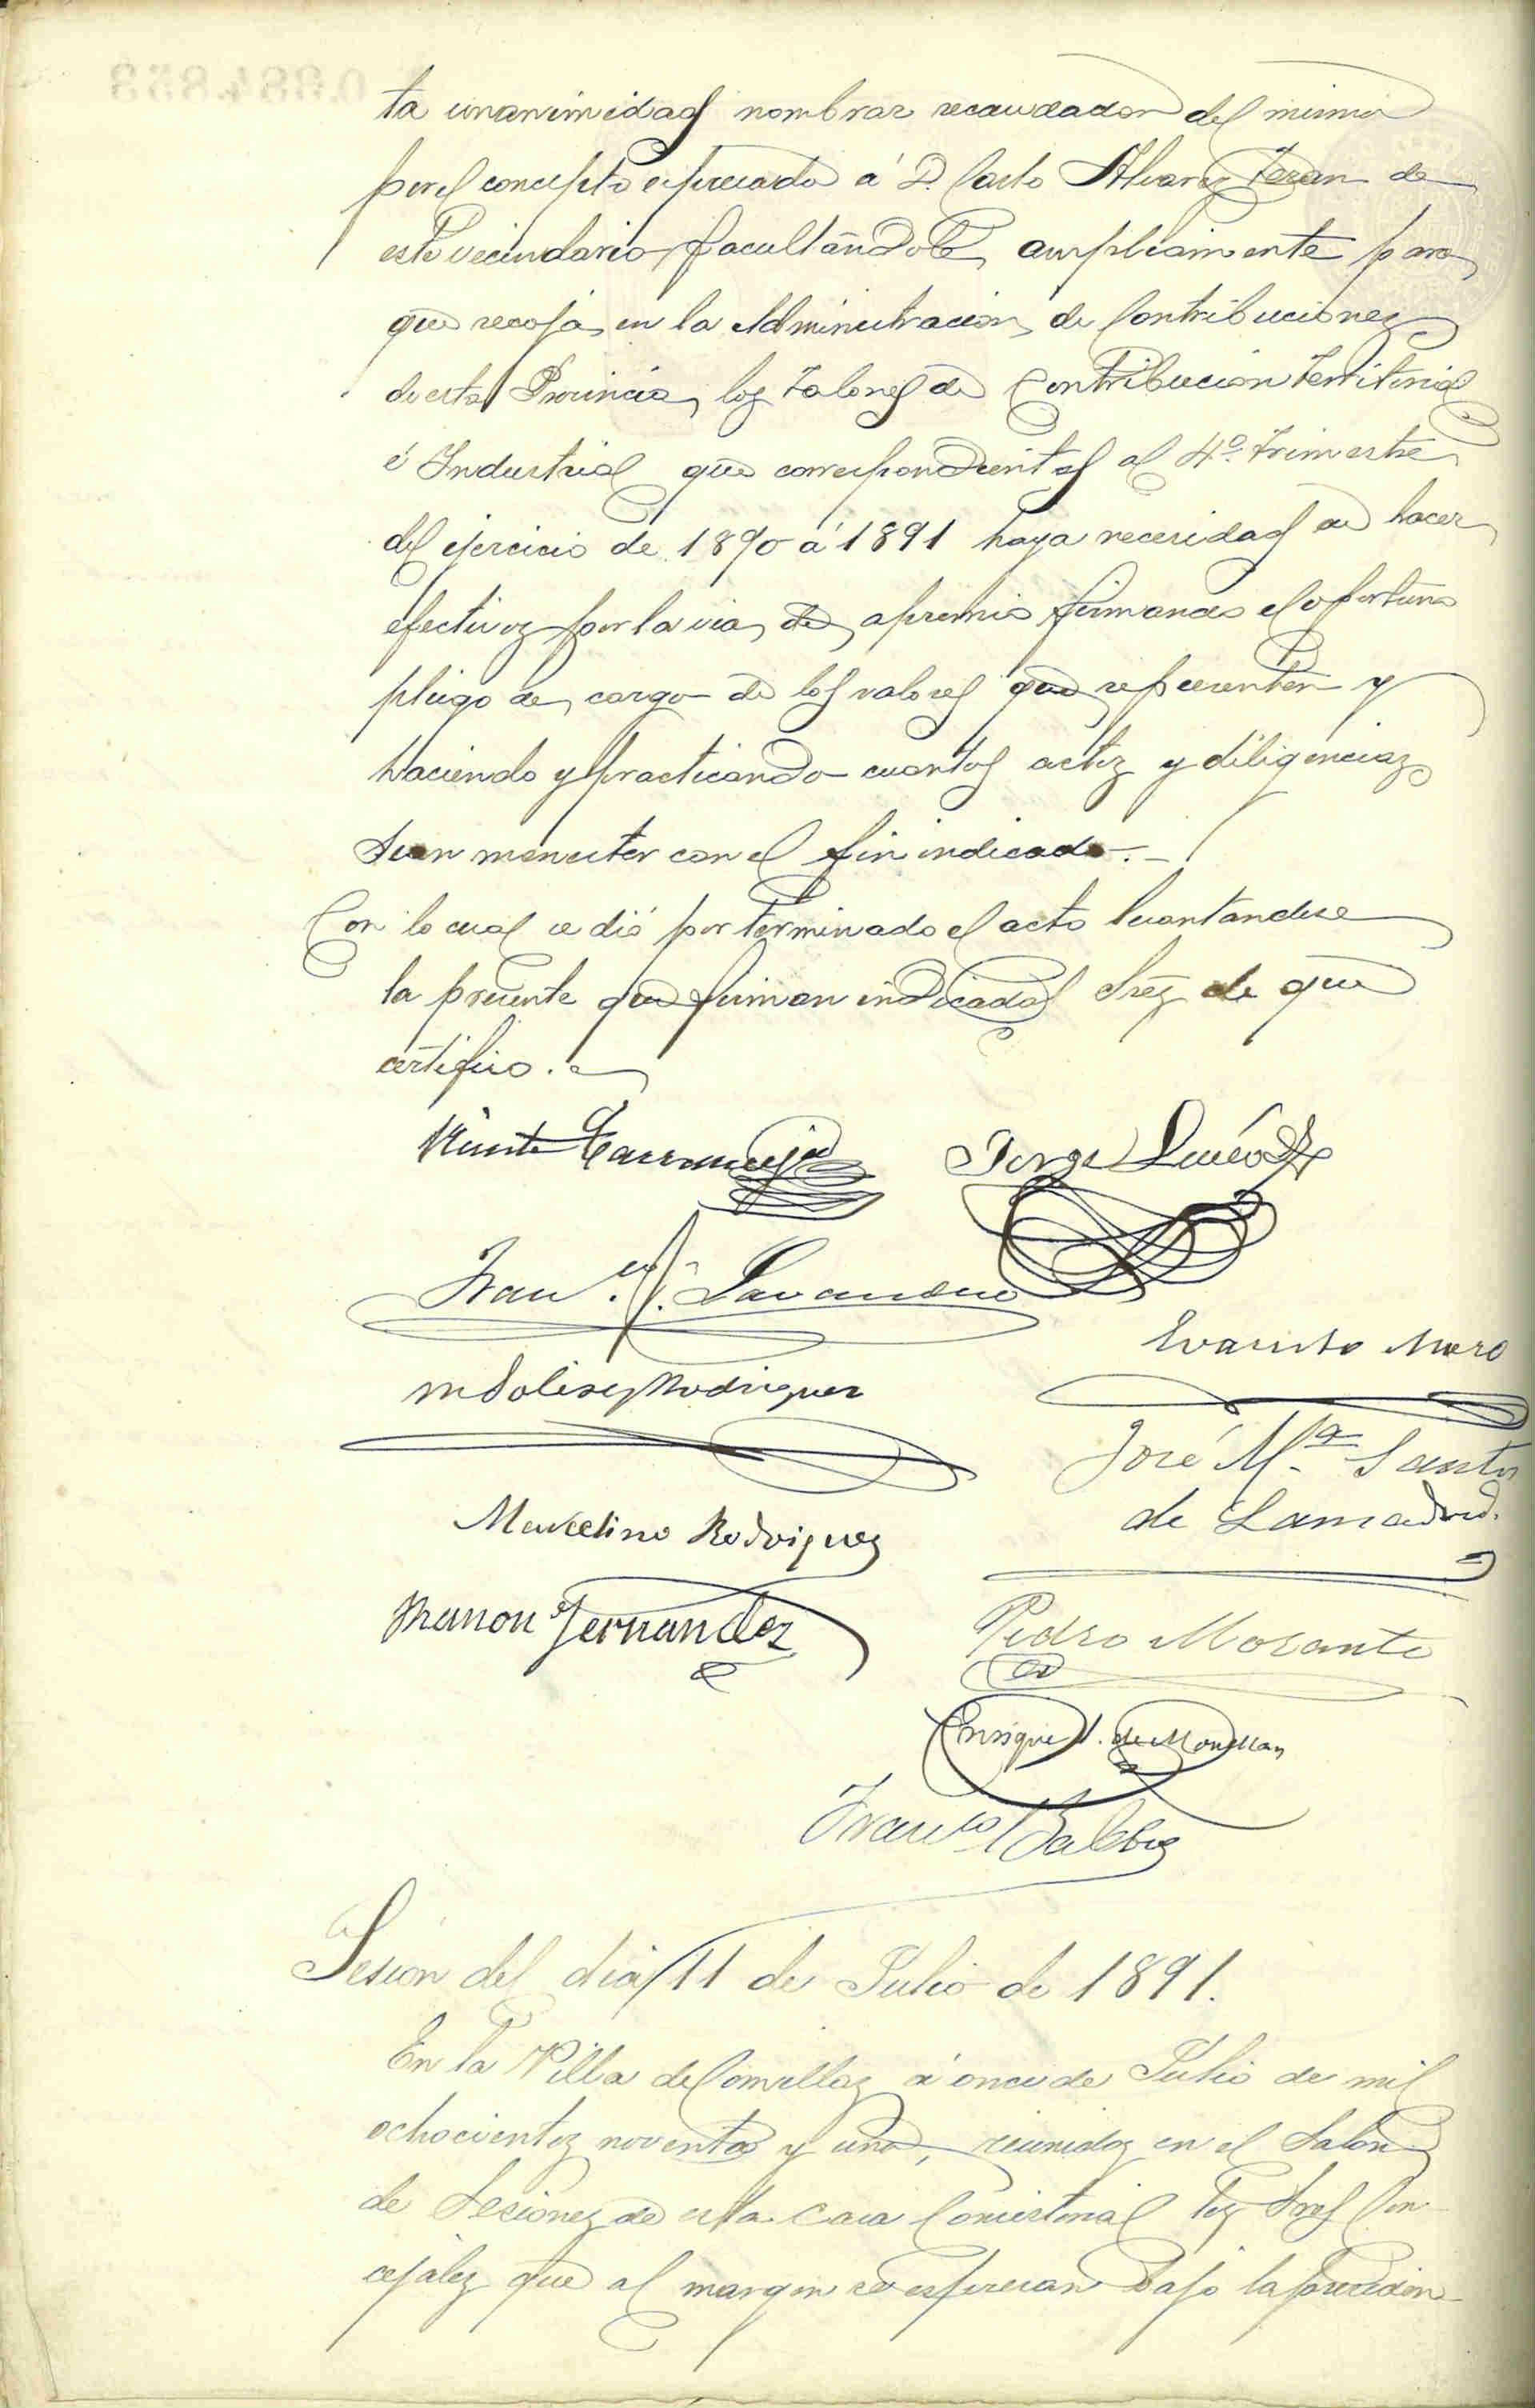 ta unanimidad nombrar recaudador del mismo
por el concepto expresado á D. Casto Alvarez Teran de
este vecindario facultándole ampliamente para
que recoja en la Administracion de Contribuciones
de esta Provincia los talones de Contribucion Territorial
é Industrial que correspondientes al 4º. trimestre
del ejercicio de 1890 á 1891 haya necesidad de hacer
efectivos por la via de apremio firmando el oportuno
pliego de cargo de los valores que representen y
haciendo y practicando cuantos actos y diligencias
sean menester con el fin indicado.-
Con lo cual se dió por terminado el acto levantandose
la presente que firman indicados Sres de que
certifico.
Vicente
Jorge
Franco. Lavandero
Evaristo Moro
M Solis y Rodriguez
José Mª Santos
de Lamadrid.
Marcelino Rodriguez
Ramon Fernandez
Pedro Morante
Enrique V. de Movellan
Franco Balbás
Sesion del dia 11 de Julio de 1891.
En la Villa de Comillas á once de Julio de mil
ochocientos noventa y uno, reunidos en el Salon
de Sesiones de esta Casa Consistorial los Sres Con-
cejales que al margen se espresan bajo la presiden-